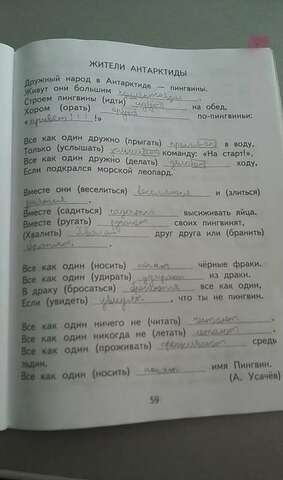 ЖИТЕЛИ АНТАРКТИДЫ
Дружный народ в Антарктиде — пингвины.
Живут они большим
Строем пингвины (идти) идут на обед,
Хором (орать) орут по-пингвиньи:
«привет!!!!»
Все как один дружно (прыгать) прыгают в воду,
Только (услышать) команду: «На старт!»,
Все как один дружно (делать) делают ходу,
Если подкрался морской леопард.
Вместе они (веселиться) веселятся и (злиться)
злятся.
Вместе (садиться) садятся высиживать яйца.
Вместе (ругать) ругают своих пингвинят,
(Хвалить) хвалят друг друга или (бранить)
бранят.
Все как один (носить) носят чёрные фраки.
Все как один (удирать) удирают из драки.
В драку (бросаться) бросаются все как один,
Если (увидеть) увидят, что ты не пингвин.
Все как один ничего не (читать) читают.
Все как один никогда не (летать) летают.
Все как один (проживать) проживают средь
льдин.
Все как один (носить) носят имя Пингвин.
(А. Усачёв)
59